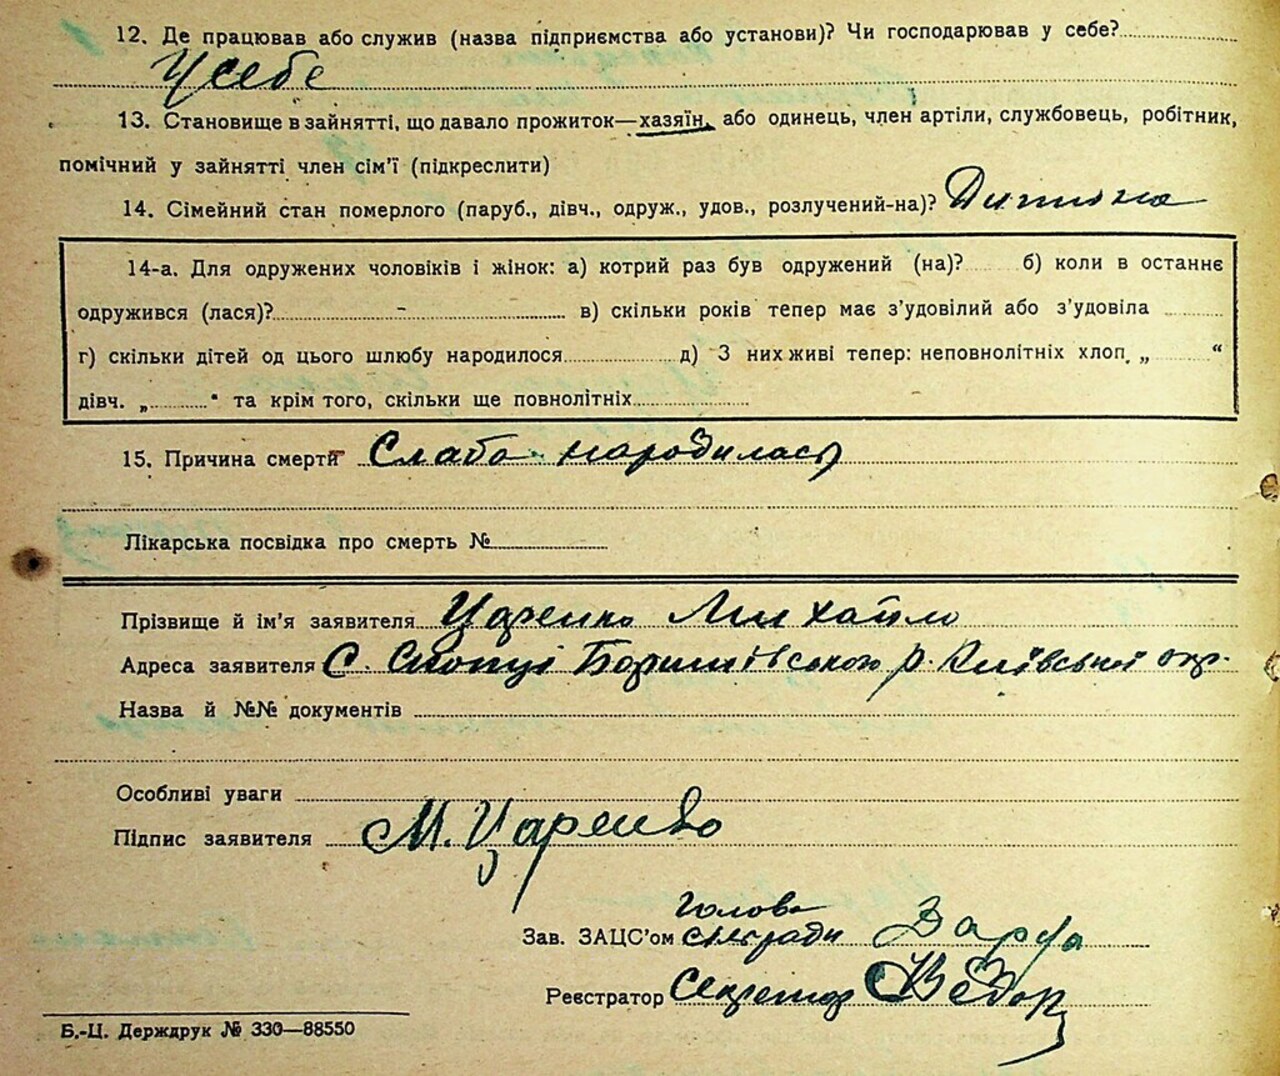 12. Де працював або служив (назва підприємства або установи)? Чи господарював у себе?
У себе
13. Становище в зайнятті, що давало прожиток—хазяїн, або одинець, член артіли, службовець, робітник,
помічний у зайнятті член сім’ї (підкреслити)
14. Сімейний стан померлого (паруб., дівч., одруж., удов., розлучений-на)? Дитина
14-а. Для одружених чоловіків і жінок: а) котрий раз був одружений (на)? б) коли в останнє
одружився (лася)? - в) скільки років тепер має з’удовілий або з’удовіла
г) скільки дітей од цього шлюбу народилося д) З них живі тепер: неповнолітніх хлоп. „ “
дівч. „ “ та крім того, скільки ще повнолітніх
15. Причина смерти Слаба народилась
Лікарська посвідка про смерть №
Прізвище й ім’я заявителя Царенко Михайло
Адреса заявителя С. Бориспівського р. Київської окр.
Назва й №№ документів
Особливі уваги
Підпис заявителя М. Царенко
Голова
Зав. ЗАЦС’ом сільради
Реєстратор Секретар
Б.-Ц. Держдрук № 330—88550